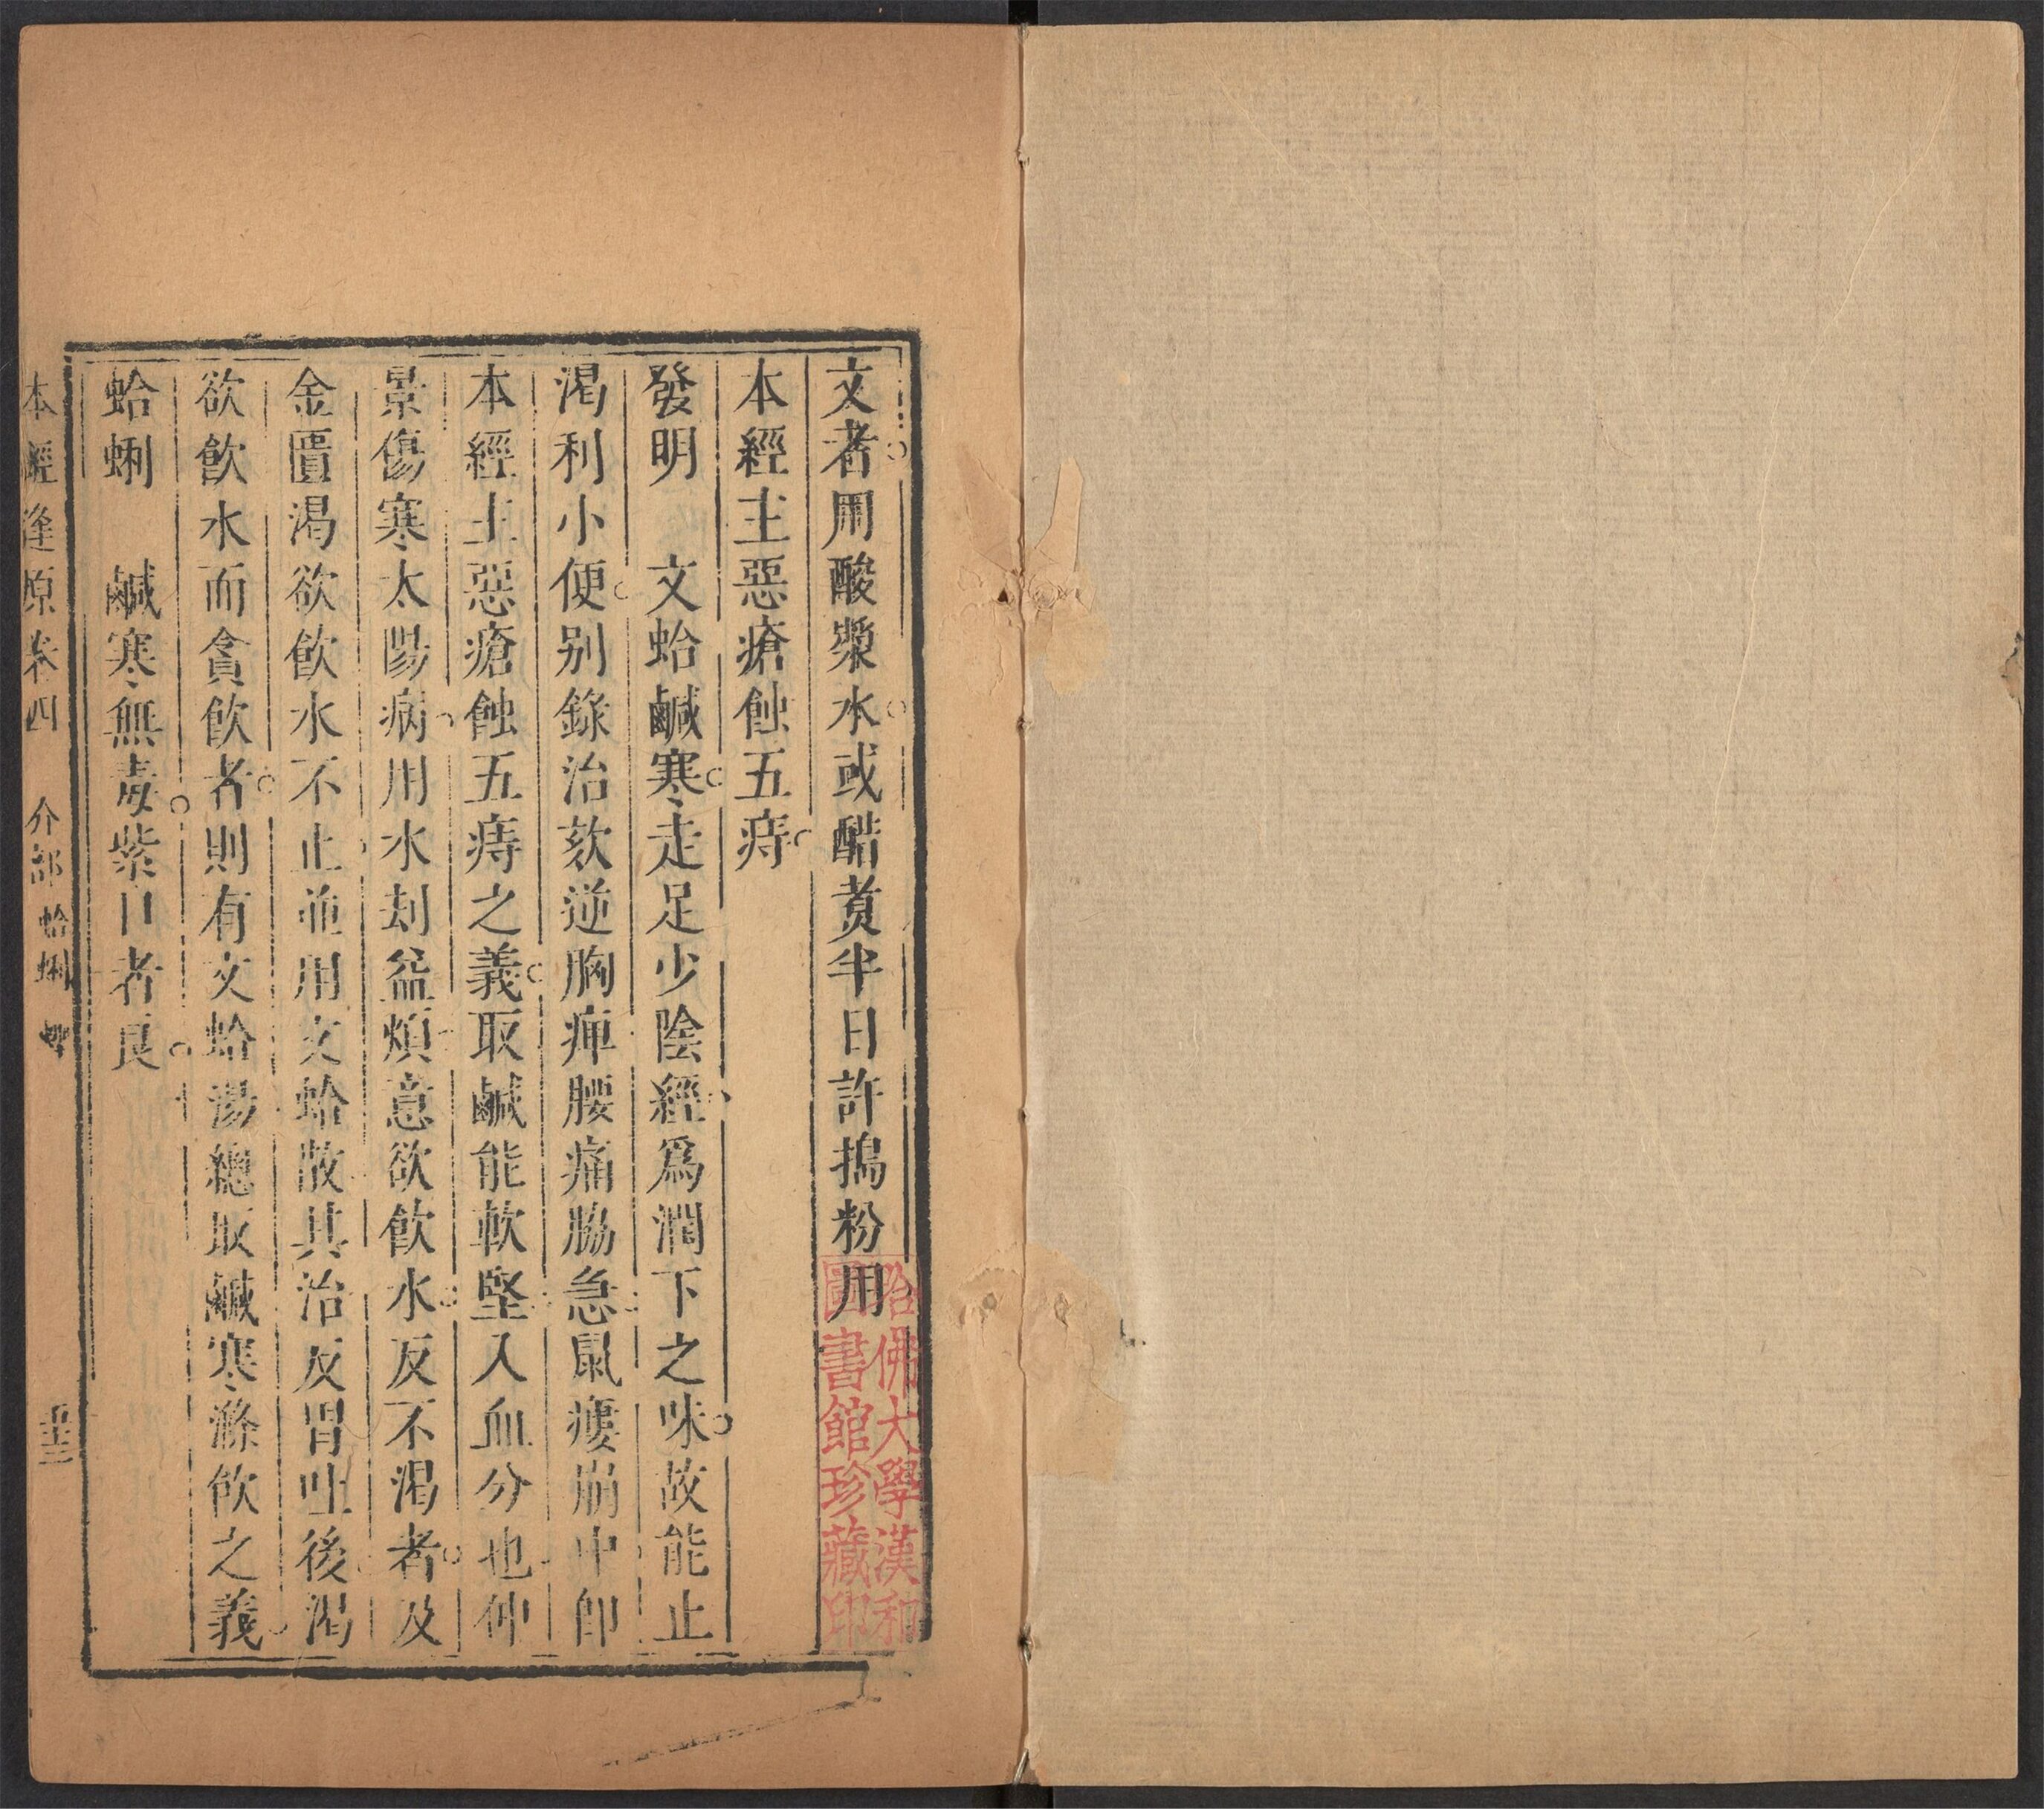 文者用酸漿水或醋煑半日許搗粉用
本經主惡瘡蝕五痔
發明　文蛤鹹寒走足少陰經爲潤下之味故能止
渴利小便别錄治欬逆胸痺腰痛脇急鼠瘻崩中卽
本經主惡瘡蝕五痔之義取鹹能軟堅入血分也仲
景傷寒太陽病用水刦益煩意欲飮水反不渴者及
金匱渴欲飮水不止並用文蛤散其治反胃吐後渴
欲飮水而貪飮者則有文蛤湯總取鹹寒滌飮之義
蛤蜊　鹹寒無毒紫口者良
本經逢原卷四　介部　蛤蜊
哈佛大學漢和
圖書館珍藏印